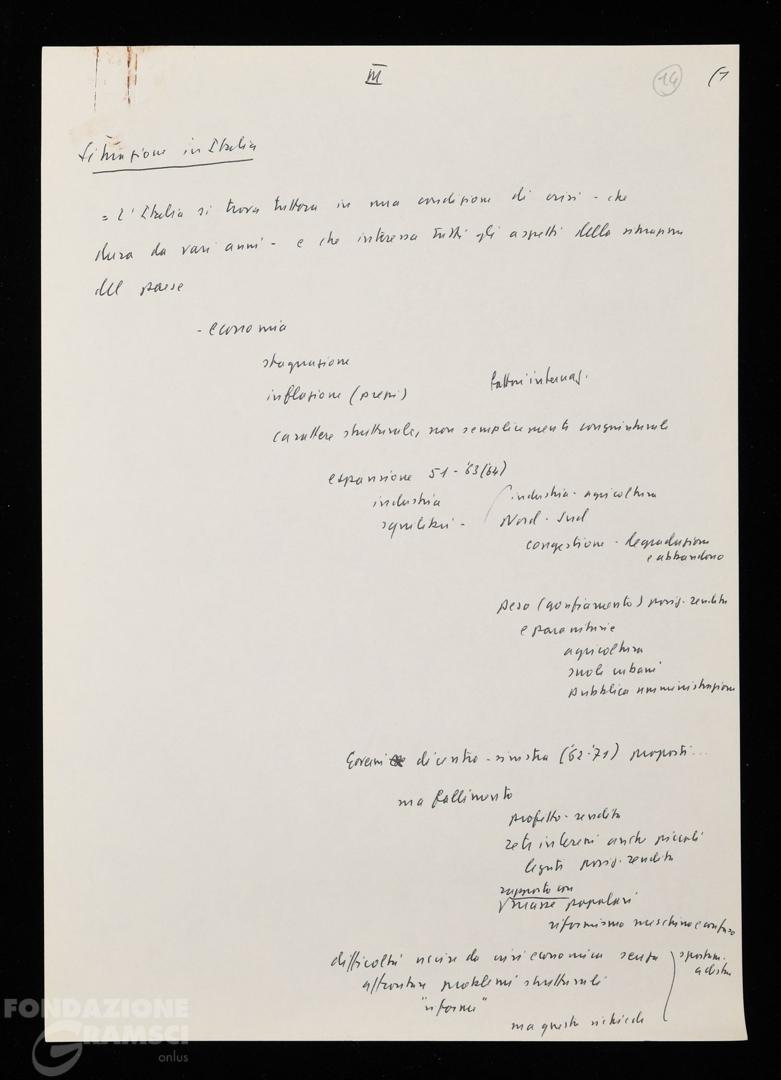 III
14
(1
Situazione in Italia
= L'Italia si trova tuttora in una condizione di crisi - che
dura da vari anni - e che interessa tutti gli aspetti della situazione
del paese
- economia
stagnazione
inflazione (prezzi)
fattori internaz.
carattere strutturale, non semplicemente congiunturale
espansione 51-'63('64)
industria
squilibri -
industria-agricoltura
Nord-Sud
congestione-degradazione
e abbandono
peso (gonfiamento) posiz. rendita
e parassitarie
agricoltura
suoli urbani
pubblica amministrazione
Governi di centro-sinistra ('62-'71) propositi...
ma fallimento
profitto-rendita
interessi anche piccoli
legati posiz. rendita
rapporto con
masse popolari
riformismo meschino e confuso
difficoltà uscire da crisi economica senza
affrontare problemi strutturali
"riforme"
spostam.
a destra
ma questo richiede
FONDAZIONE
GRAMSCI
onlus